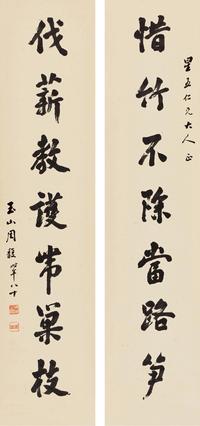 星五仁兄大人正
惜竹不除當路笋
伐薪教護帶巢枝
玉山周馥時年八十